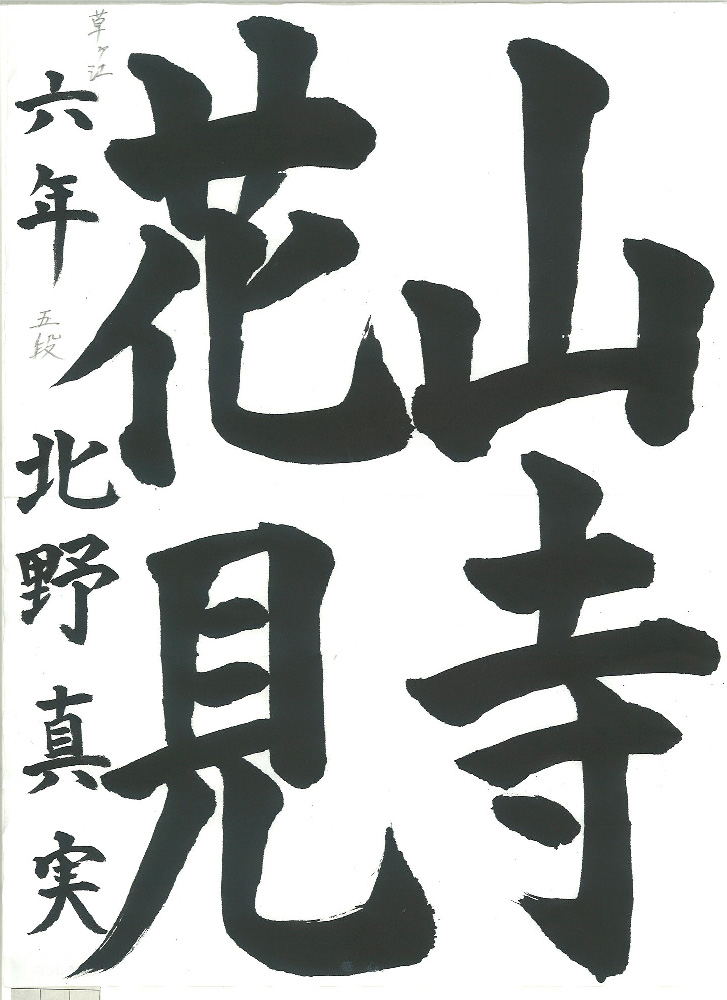 山寺
花見
草ヶ江
六年 五段 北野真実